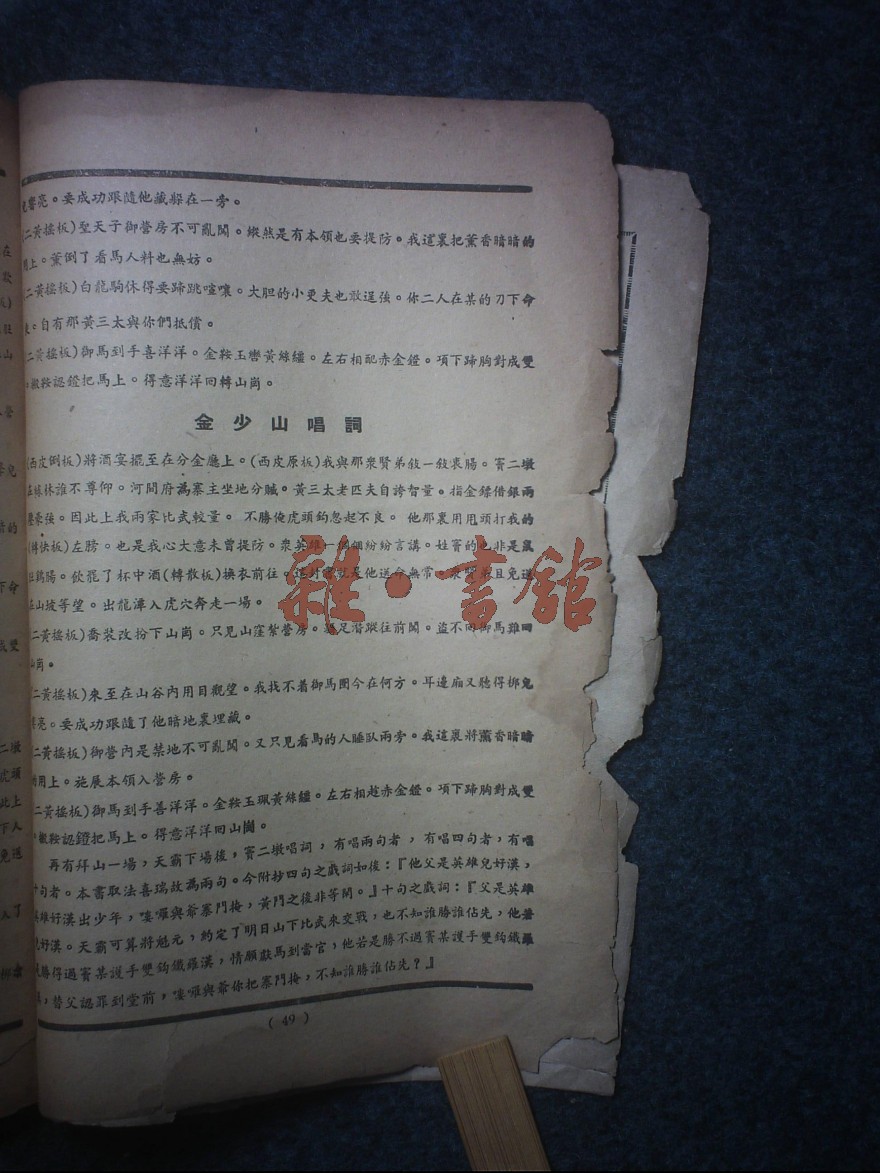 響亮。要成功跟隨他藏躱在一旁。
二黃搖板)聖天子御營房不可亂闖。縱然是有本領也要提防。我這裏把薰香暗暗的
用上。薰倒了看馬人料也無妨。
二黃搖板)白龍駒休得要蹄跳喧嚷。大胆的小更夫也敢逞強。你二人在某的刀下命
。自有那黃三太與你們抵償。
二黃搖板)御馬到手喜洋洋。金鞍玉轡黃絲繮。左右相配赤金鐙。項下蹄胸對成雙
。搬鞍認鐙把馬上。得意洋洋回轉山崗。
金少山唱詞
(西皮倒板)將酒宴擺至在分金廳上。(西皮原板)我與那衆賢弟敍一敍衷腸。竇二墩
綠林誰不尊仰。河間府爲寨主坐地分贓。黃三太老匹夫自誇智量。指金鏢借銀兩
豪強。因此上我兩家比武較量。不勝俺虎頭鈎忽起不良。他那裏用甩頭打我的
(轉快板)左膀。也是我心大意未曾提防。衆英雄一個個紛紛言講。姓竇的也非是鼠
肚鷄腸。飲罷了杯中酒(轉散板)換衣前往。這封書就是他送命無常。衆賢弟且免送
在山坡等望。出龍潭入虎穴奔走一場。
二黃搖板)喬裝改扮下山崗。只見山窪紮營房。躡足潛蹤往前闖。盜不回御馬難回
山崗。
二黃搖板)來至在山谷內用目觀望。我找不着御馬圈今在何方。耳邊廂又聽得梆兒
響亮。要成功跟隨了他暗地裏埋藏。
二黃搖板)御營內是禁地不可亂闖。又只見看馬的人睡臥兩旁。我這裏將薰香暗暗
的用上。施展本領入營房。
二黃搖板)御馬到手善洋洋。金鞍玉珮黃絲繮。左右相趁赤金鐙。項下蹄胸對成雙
。搬鞍認鐙把馬上。得意洋洋回山崗。
再有拜山一場，天霸下場後，竇二墩唱詞，有唱兩句者，有唱四句者，有唱
十句者。本書取法喜瑞故爲兩句。今附抄四句之戲詞如後：『他父是英雄兒好漢，
英雄好漢出少年，嘍囉與爺寨門掩，黃門之後非等閒。』十句之戲詞：『父是英雄
兒好漢。天霸可算將魁元，約定了明日山下比武來交戰，也不知誰勝誰佔先，他若
勝得過竇某護手雙鈎鐵羅漢，情願獻馬到當官，他若是勝不過竇某護手雙鈎鐵羅
，替父認罪到堂前，嘍囉與爺你把寨門掩，不知誰勝誰佔先？』
( 49 )
雜·書館